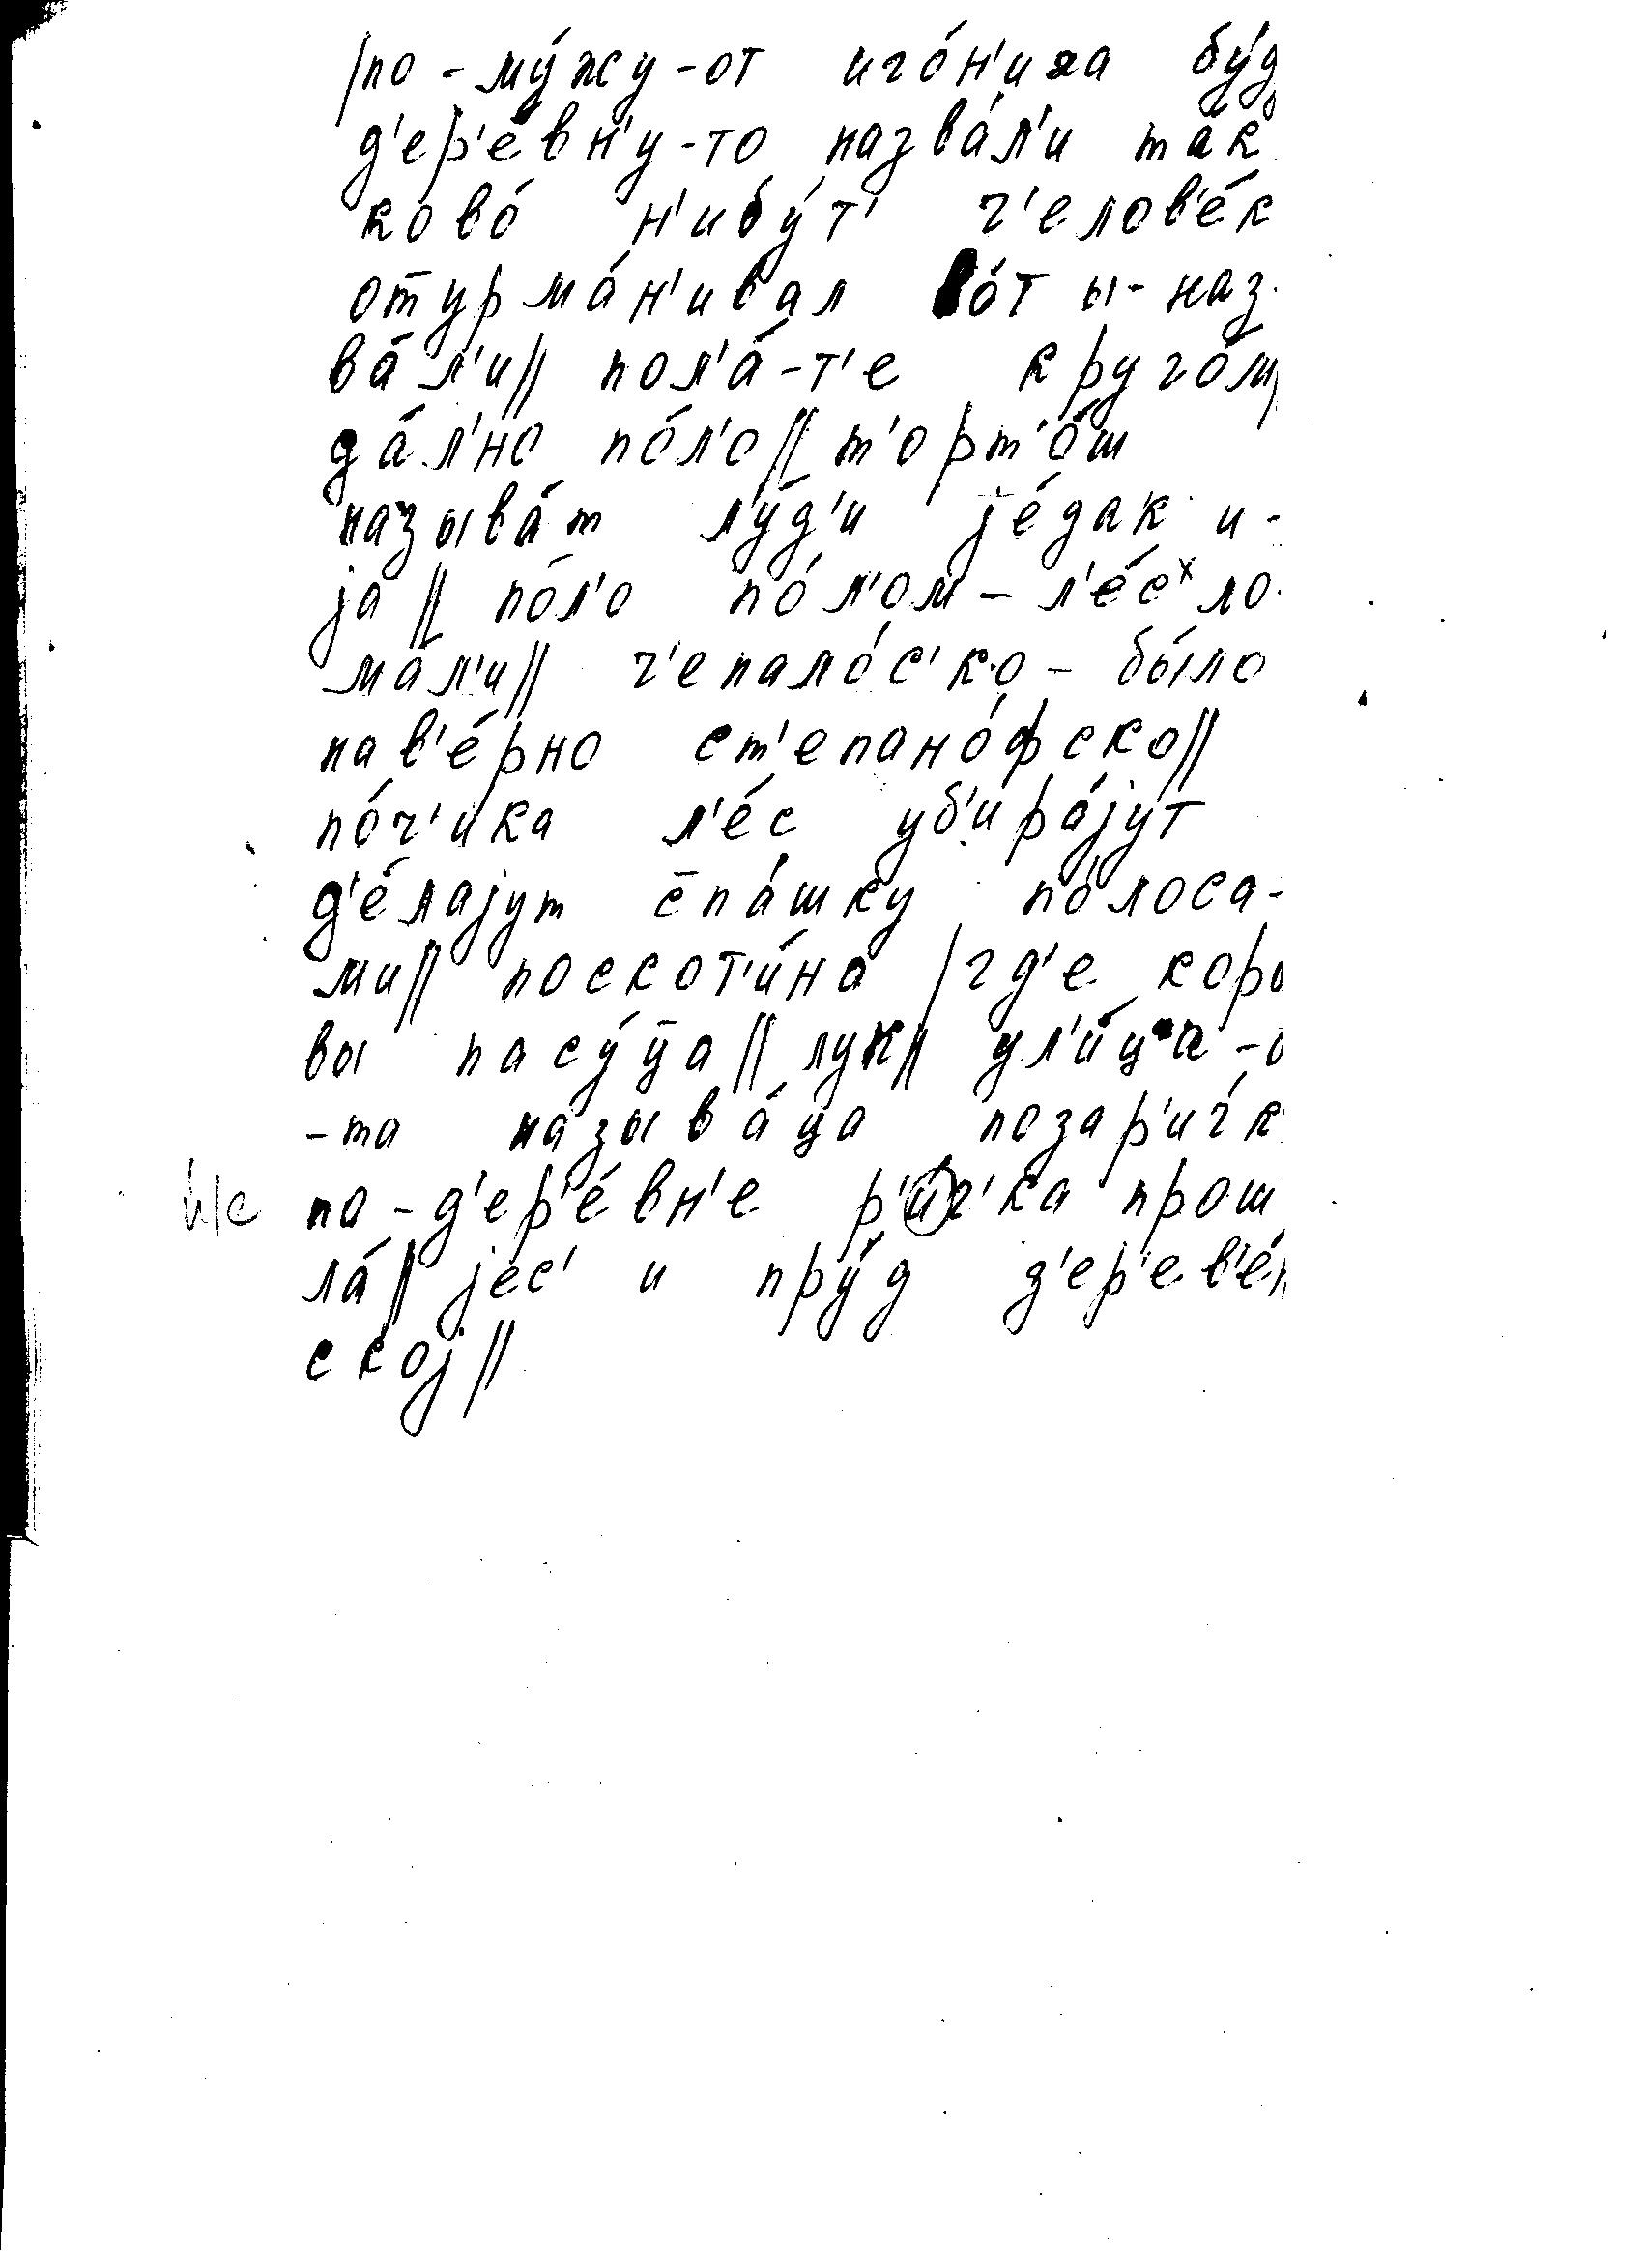 /по-му́жу-от иго́н'иха бу́д
д'ер'е́вн'у-то назва́л'и та́к
ково́ н'ибу́т' ч'елов'е́к
отурма́н'ивал во́т ы-наз-
ва́л'и// пол'а́-т'е круго́м/
да́л'но по́л'о// т'орт'о́ш
называ́т л'у́д'и је́дак и-
ја // по́л'о по́л'ом - л'е́с ло-
ма́л'и// ч'епало́с'ко - бы́ло
нав'е́рно ст'епано́фско//
по́ч'ика л'е́с уб'ира́јут
д'е́лајут с̄па́шку по́лоса-
ми// поскот'и́на /гд'е коро
вы пасу́ц̄а// лук// ул'и́ца -о
-та называ́ца позар'и́чк
и/е по-д'ер'е́вн'е р'и́ч'ка прош
ла́// јес' и пру́д д'ер'ев'е́н
ској//